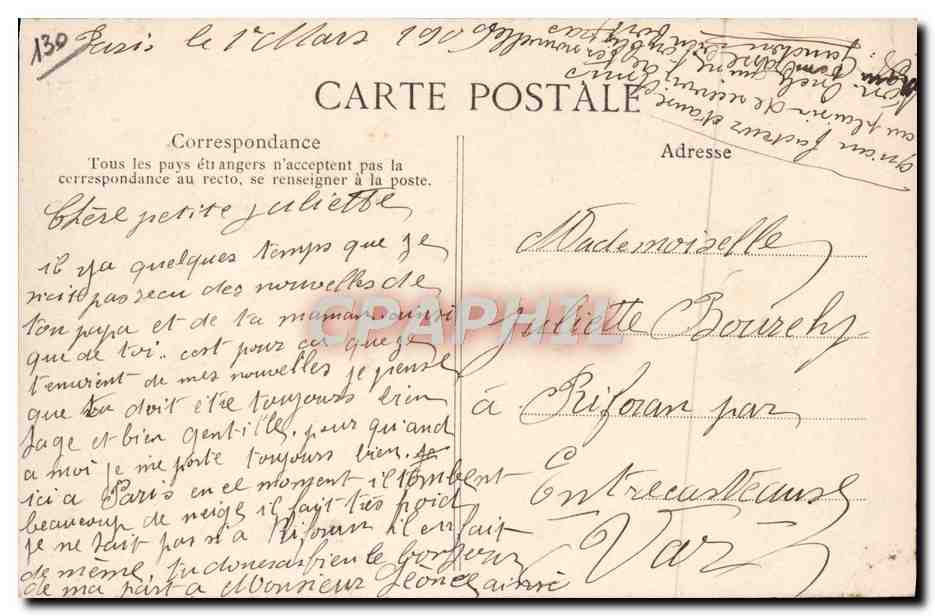 130
Paris le 1er Mars 1906
CARTE POSTALE
Correspondance
Tous les pays étrangers n'acceptent pas la
correspondance au recto, se renseigner à la poste.
Adresse
Chère petite Juliette
il y a quelques temps que je
pas recu des nouvelles de
ton papa et de ta maman. ausi
que de toi.. c'est pour ca que je
de mes nouvelles je pense
que tu doit être toujours bien
sage et bien gentille. pour quand
a moi je me porte toujours bien.
ici a Paris en ce moment il tombent
beaucoup de neige il fait tres froid
je ne sait pas si a Riforan il en fait
de même, tu donneras bien le bonjour
de ma part a Monsieur Léonce ainsi
qu'au facteur
au plaisir de
Mademoiselle
Juliette Bourely
à Riforan par
Entrecasteaux
Var
CPAPHIL